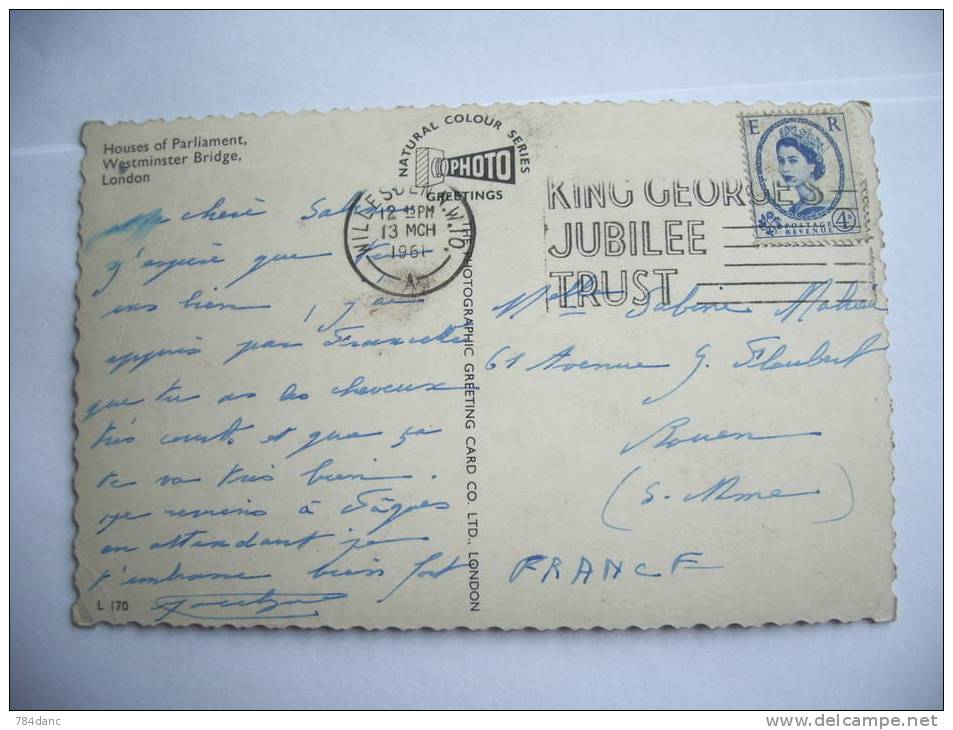 Houses of Parliament,
Westminster Bridge,
London
NATURAL COLOUR SERIES
PHOTO
GREETINGS
WILLESDEN N.W.10.
12 15 PM
13 MCH
1961
A
KING GEORGE'S
JUBILEE
TRUST
E R
4D
POSTAGE
REVENUE
Ma chère Sabine
j'espère que tu
vas bien, j'ai
appris par Francette
que tu as les cheveux
très courts et que ça
te va très bien.
Je reviens à Pâques
en attendant je
t'embrasse bien fort
L 170
THE PHOTOGRAPHIC GREETING CARD CO. LTD., LONDON
Melle Sabine
61 Avenue G. Flaubert
Rouen
(S. Mme)
FRANCE
784danc
www.delcampe.net